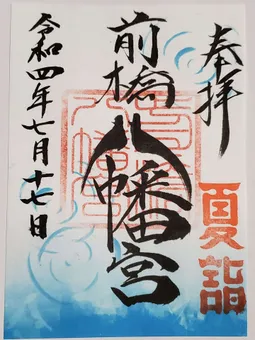 奉拝
夏詣
前橋
八幡宮
令和四年七月十七日